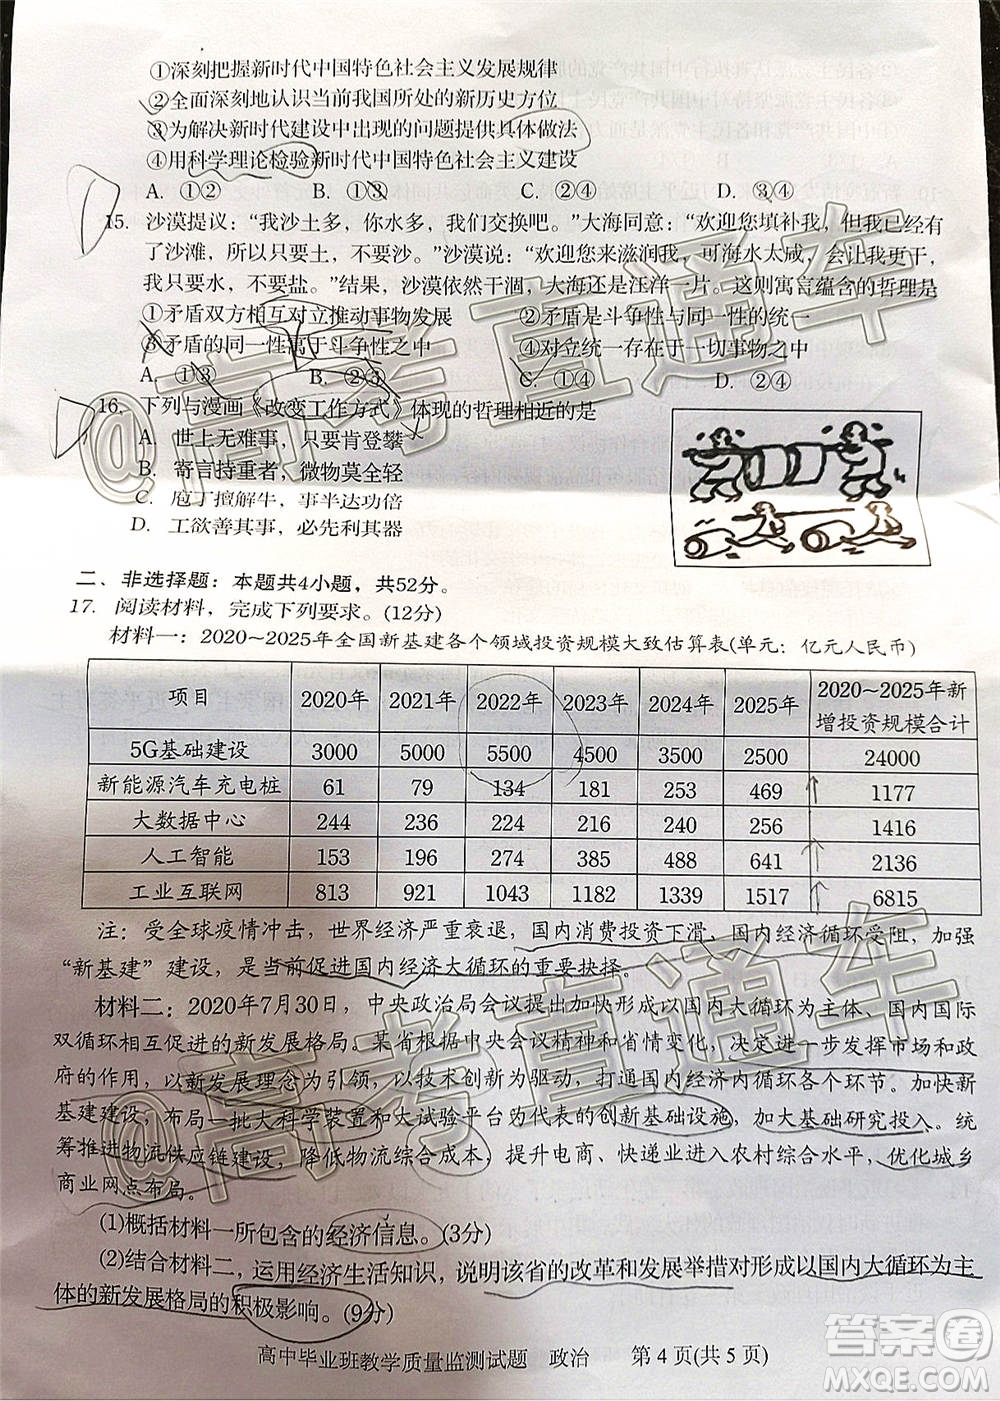 ①深刻把握新时代中国特色社会主义发展规律
②全面深刻地认识当前我国所处的新历史方位
③为解决新时代建设中出现的问题提供具体做法
④用科学理论检验新时代中国特色社会主义建设
A. ①② B. ①③ C. ②④ D. ③④
15. 沙漠提议：“我沙土多，你水多，我们交换吧。”大海同意：“欢迎您填补我，但我已经有
了沙滩，所以只要土，不要沙。”沙漠说：“欢迎您来滋润我，可海水太咸，所以
我只要水，不要盐。”结果，沙漠依然干涸，大海还是汪洋一片。这则寓言蕴含的哲理是
①矛盾双方相互对立推动事物发展 ②矛盾是斗争性与同一性的统一
③矛盾的同一性寓于斗争性之中 ④对立统一存在于一切事物之中
A. ①③ B. ②③ C. ①④ D. ②④
16. 下列与漫画《改变工作方式》体现的哲理相近的是
A. 世上无难事，只要肯登攀
B. 寄言持重者，微物莫全轻
C. 庖丁擅解牛，事半达功倍
D. 工欲善其事，必先利其器
二、非选择题：本题共4小题，共52分。
17. 阅读材料，完成下列要求。(12分)
材料一：2020~2025年全国新基建各个领域投资规模大致估算表(单元：亿元人民币)
项目 2020年 2021年 2022年 2023年 2024年 2025年 2020~2025年新
增投资规模合计
5G基础建设 3000 5000 5500 4500 3500 2500 24000
新能源汽车充电桩 61 79 134 181 253 469 1177
大数据中心 244 236 224 216 240 256 1416
人工智能 153 196 274 385 488 641 2136
工业互联网 813 921 1043 1182 1339 1517 6815
注：受全球疫情冲击，世界经济严重衰退，国内消费投资下滑，国内经济循环受阻，加强
“新基建”建设，是当前促进国内经济大循环的重要抉择。
材料二：2020年7月30日，中央政治局会议提出加快形成以国内大循环为主体、国内国际
双循环相互促进的新发展格局。某省根据中央会议精神和省情变化，决定进一步发挥市场和政
府的作用，以新发展理念为引领，以技术创新为驱动，打通国内经济内循环各个环节。加快新
基建建设，布局一批大科学装置和大试验平台为代表的创新基础设施，加大基础研究投入。统
筹推进物流供应链建设，降低物流综合成本，提升电商、快递业进农村综合水平，优化城乡
商业网点布局。
(1)概括材料一所包含的经济信息。(3分)
(2)结合材料二，运用经济生活知识，说明该省的改革和发展举措对形成以国内大循环为主
体的新发展格局的积极影响。(9分)
高中毕业班教学质量监测试题 政治 第4页(共5页)
@高考直通车
@高考直通车
答案圈
MXQE.COM